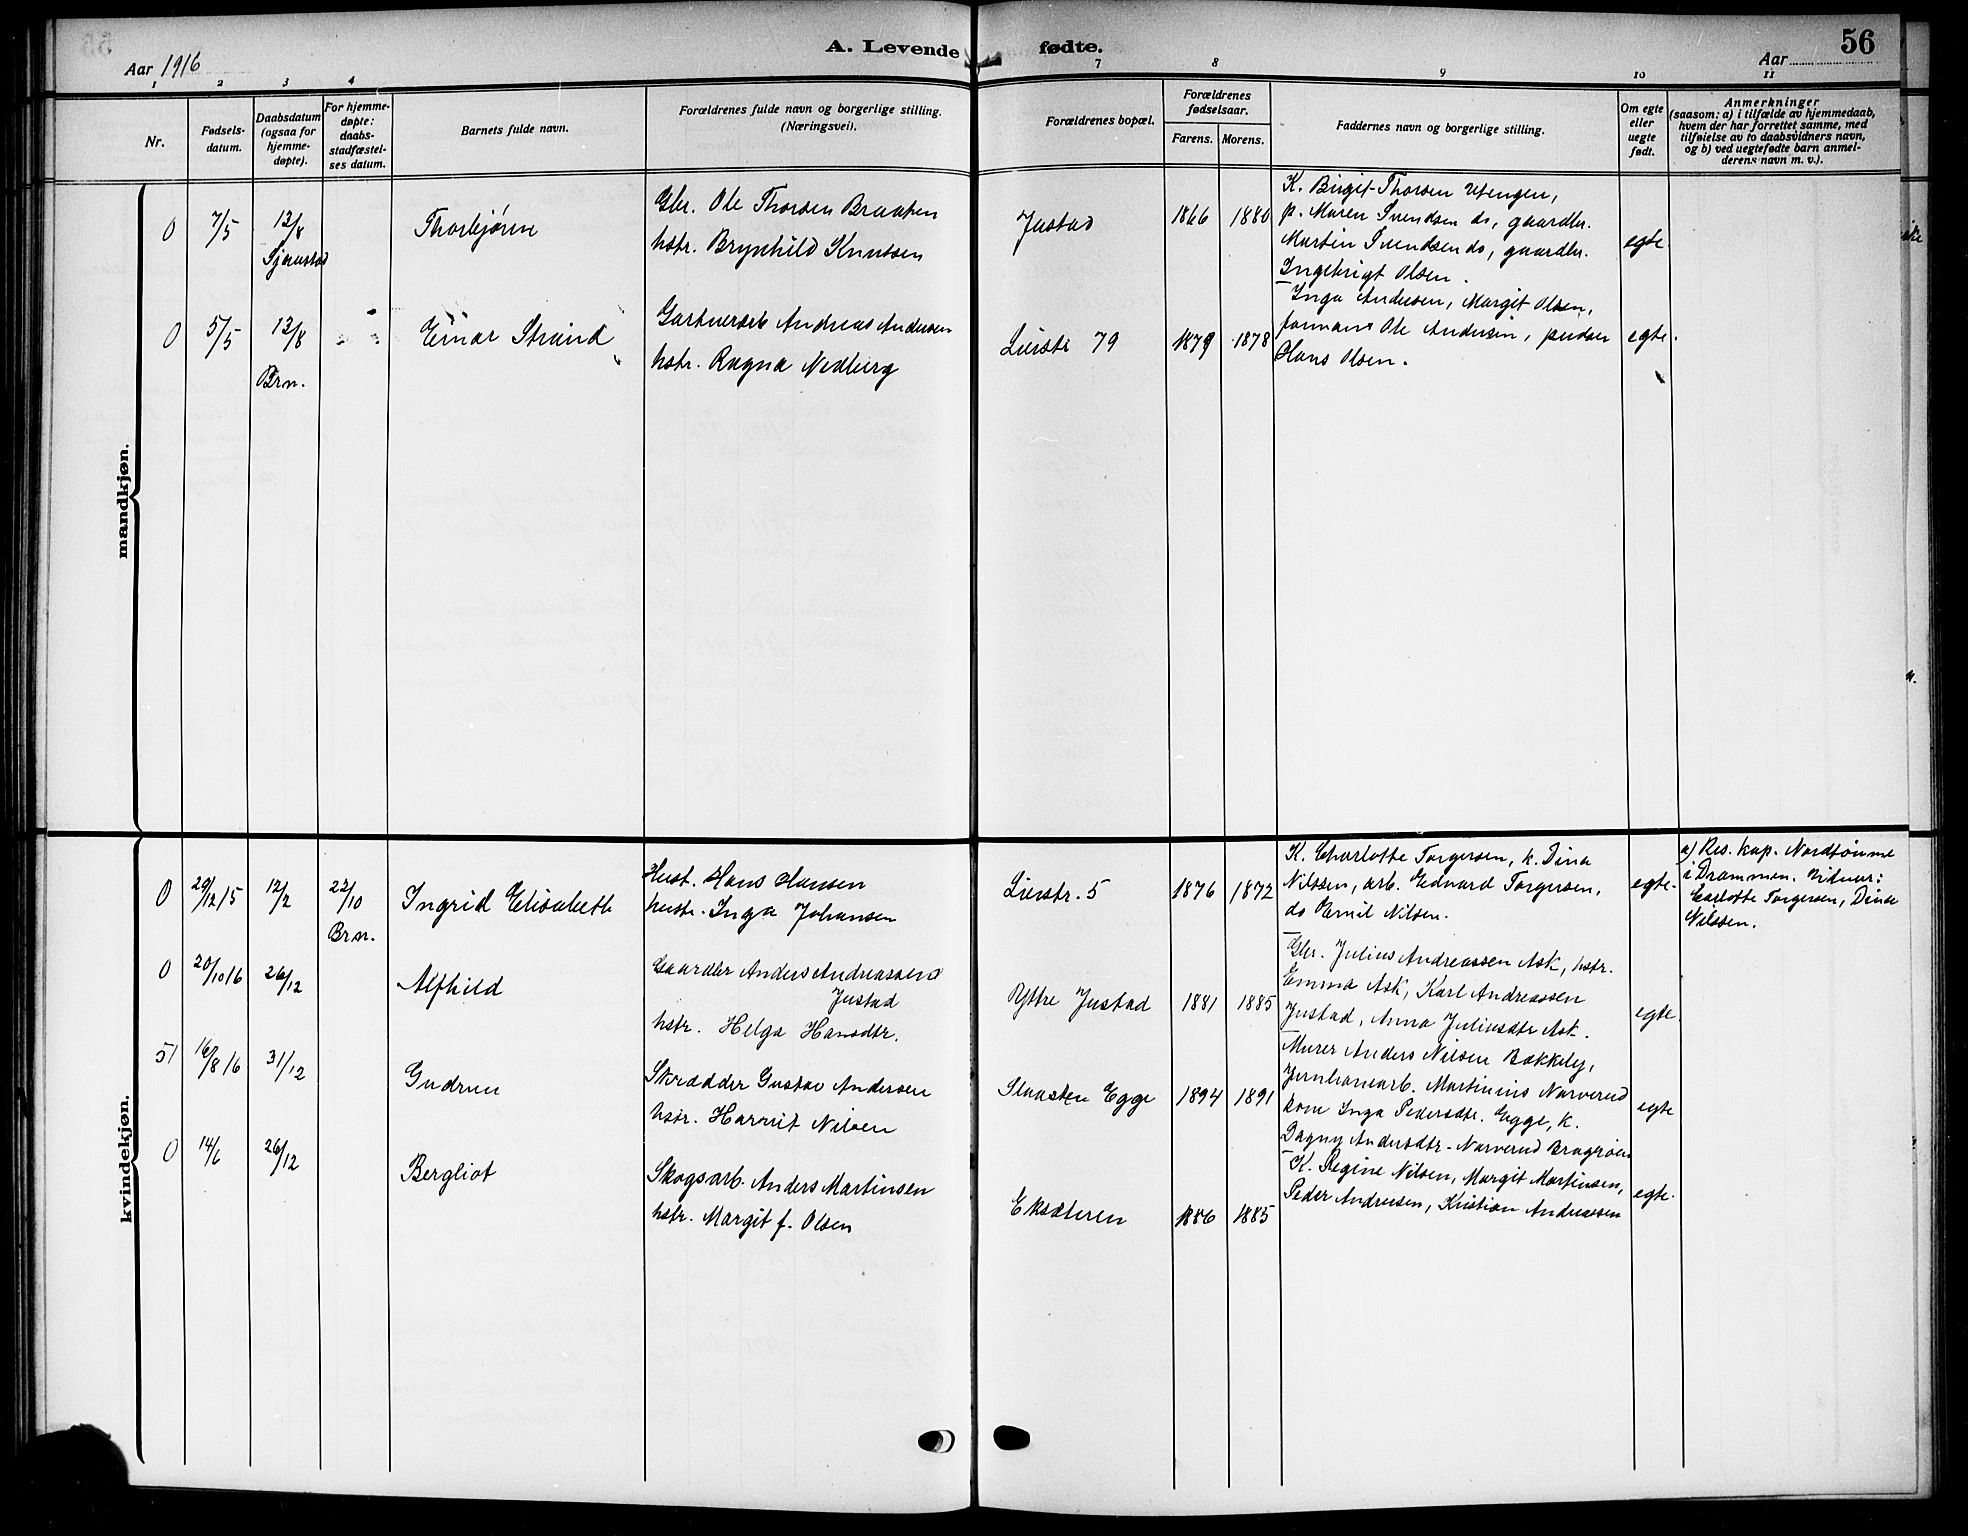 A. Levende fødte.
56
Aar 1916
Aar
1 2 3 4 7 8 9 10 11
Nr.
Fødsels-
datum.
Daabsdatum
(ogsaa for
hjemme-
døpte).
For hjemme-
døpte:
daabs-
stadfæstel-
ses datum.
Barnets fulde navn.
Forældrenes fulde navn og borgerlige stilling.
(Næringsvei).
Forældrenes bopæl.
Forældrenes
fødselsaar.
Farens. Morens.
Faddernes navn og borgerlige stilling.
Om egte
eller
uegte
født.
Anmerkninger
(saasom: a) i tilfælde av hjemmedaab,
hvem der har forrettet samme, med
tilføielse av to daabsvidners navn,
og b) ved uegtefødte barn anmel-
derens navn m. v.).
mandkjøn.
0
7/5
13/8
Sjaastad
Thorbjørn
Gbr. Ole Thorsen Braaten
hstr. Brynhild Knutsen
Justad
1866 1880
K. Birgit Thorsen Utengen,
p. Maren Svendsen do, gaardbr.
Martin Svendsen do, gaardbr.
Ingebrigt Olsen.
egte.
0
5/5
13/8
Brn.
Einar Strand
Gartnerarb Andreas Andersen
hstr. Ragna Nedberg
Lierstr 79
1879 1878
Inga Andersen, Margit Olsen,
formand Ole Andersen,
Hans Olsen.
egte.
kvindekjøn.
0
29/12 15
12/2
22/10
Brn.
Ingrid Elisabeth
Hans Hansen
hustr. Inga Johansen
Lierstr. 5
1876 1872
K. Charlotte Torgersen, k. Dina
Nilssen, arb. Edvard Torgersen,
do Emil Nilsen.
egte.
a) Res. kap. Nordtømme
i Drammen. Vidner:
Carlotte Torgersen, Dina
Nilssen.
0
20/10 16
26/12
Alfhild
Gaardbr Anders Andreassen
Justad
hstr. Helga Hansdtr.
Yttre Justad
1881 1885
Gbr. Julius Andreassen Ask, hstr.
Emma Ask, Karl Andreassen
Justad, Anna Juliusdtr Ask.
egte
51
16/8 16
31/12
Gudrun
Skrædder Gustav Andersen
hstr. Harriet Nilsen
Staasten Egge
1894 1891
Murer Anders Nilsen Bakkely,
Jernbanearb. Martinius Narverud
kone Inga Pedersdtr. Egge, k.
Dagny Andersdtr. Narverud Bragerøen
egte
0
14/6
26/12
Bergliot
Skogsarb. Anders Martinsen
hstr. Margit f. Olsen
Eksæteren
1886 1885
K. Regine Nilsen, Margit Martinsen,
Peder Andresen, Kristian Andreassen
egte.